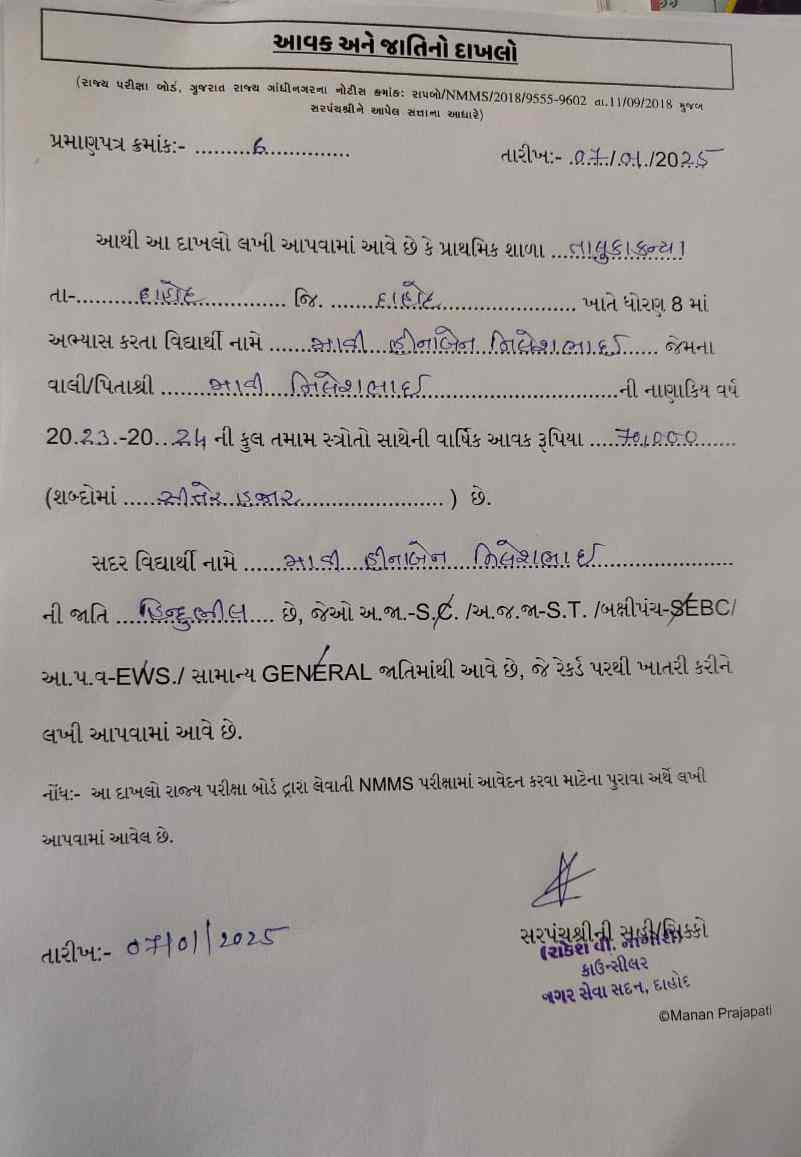 આવક અને જાતિનો દાખલો
(રાજ્ય પરીક્ષા બોર્ડ, ગુજરાત રાજ્ય ગાંધીનગરના નોટીસ ક્રમાંક: રાપબો/NMMS/2018/9555-9602 તા.11/09/2018 મુજબ
સરપંચશ્રીને આપેલ સત્તાના આધારે)
પ્રમાણપત્ર ક્રમાંક:- .........6.............. તારીખ:- .07/01/2025
આથી આ દાખલો લખી આપવામાં આવે છે કે પ્રાથમિક શાળા ...તાલુકા કન્યા
તા-.........દાહોદ............... જિ. .......દાહોદ....................... ખાતે ધોરણ 8 માં
અભ્યાસ કરતા વિદ્યાર્થી નામે .......ભાવી હીનાબેન નિલેશભાઈ...... જેમના
વાલી/પિતાશ્રી ........ભાવી નિલેશભાઈ..............................ની નાણાકિય વર્ષ
20.23.-20...24 ની કુલ તમામ સ્ત્રોતો સાથેની વાર્ષિક આવક રૂપિયા ....70,000......
(શબ્દોમાં .....સીત્તેર હજાર........................ ) છે.
સદર વિદ્યાર્થી નામે ......ભાવી હીનાબેન નિલેશભાઈ......................
ની જાતિ ....હિન્દુ ભીલ.... છે, જેઓ અ.જા.-S.C. /અ.જ.જા-S.T. /બક્ષીપંચ-SEBC/
આ.પ.વ-EWS./ સામાન્ય GENERAL જાતિમાંથી આવે છે, જે રેકર્ડ પરથી ખાતરી કરીને
લખી આપવામાં આવે છે.
નોંધ:- આ દાખલો રાજ્ય પરીક્ષા બોર્ડ દ્વારા લેવાતી NMMS પરીક્ષામાં આવેદન કરવા માટેના પુરાવા અર્થે લખી
આપવામાં આવેલ છે.
તારીખ:- 07/01/2025
સરપંચશ્રીની સહી/સિક્કો
(રાકેશ વી. નાગોરી)
કાઉન્સીલર
નગર સેવા સદન, દાહોદ
©Manan Prajapati